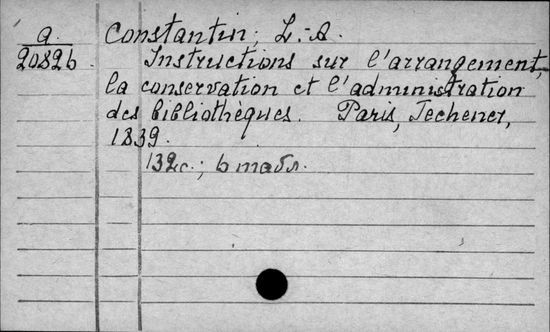 a. Constantin, L.-A.
20826 Instructions sur l'arrangement,
la conservation et l'administration
des bibliothèques. Paris, Techener,
1839.
132c.; 6 табл.